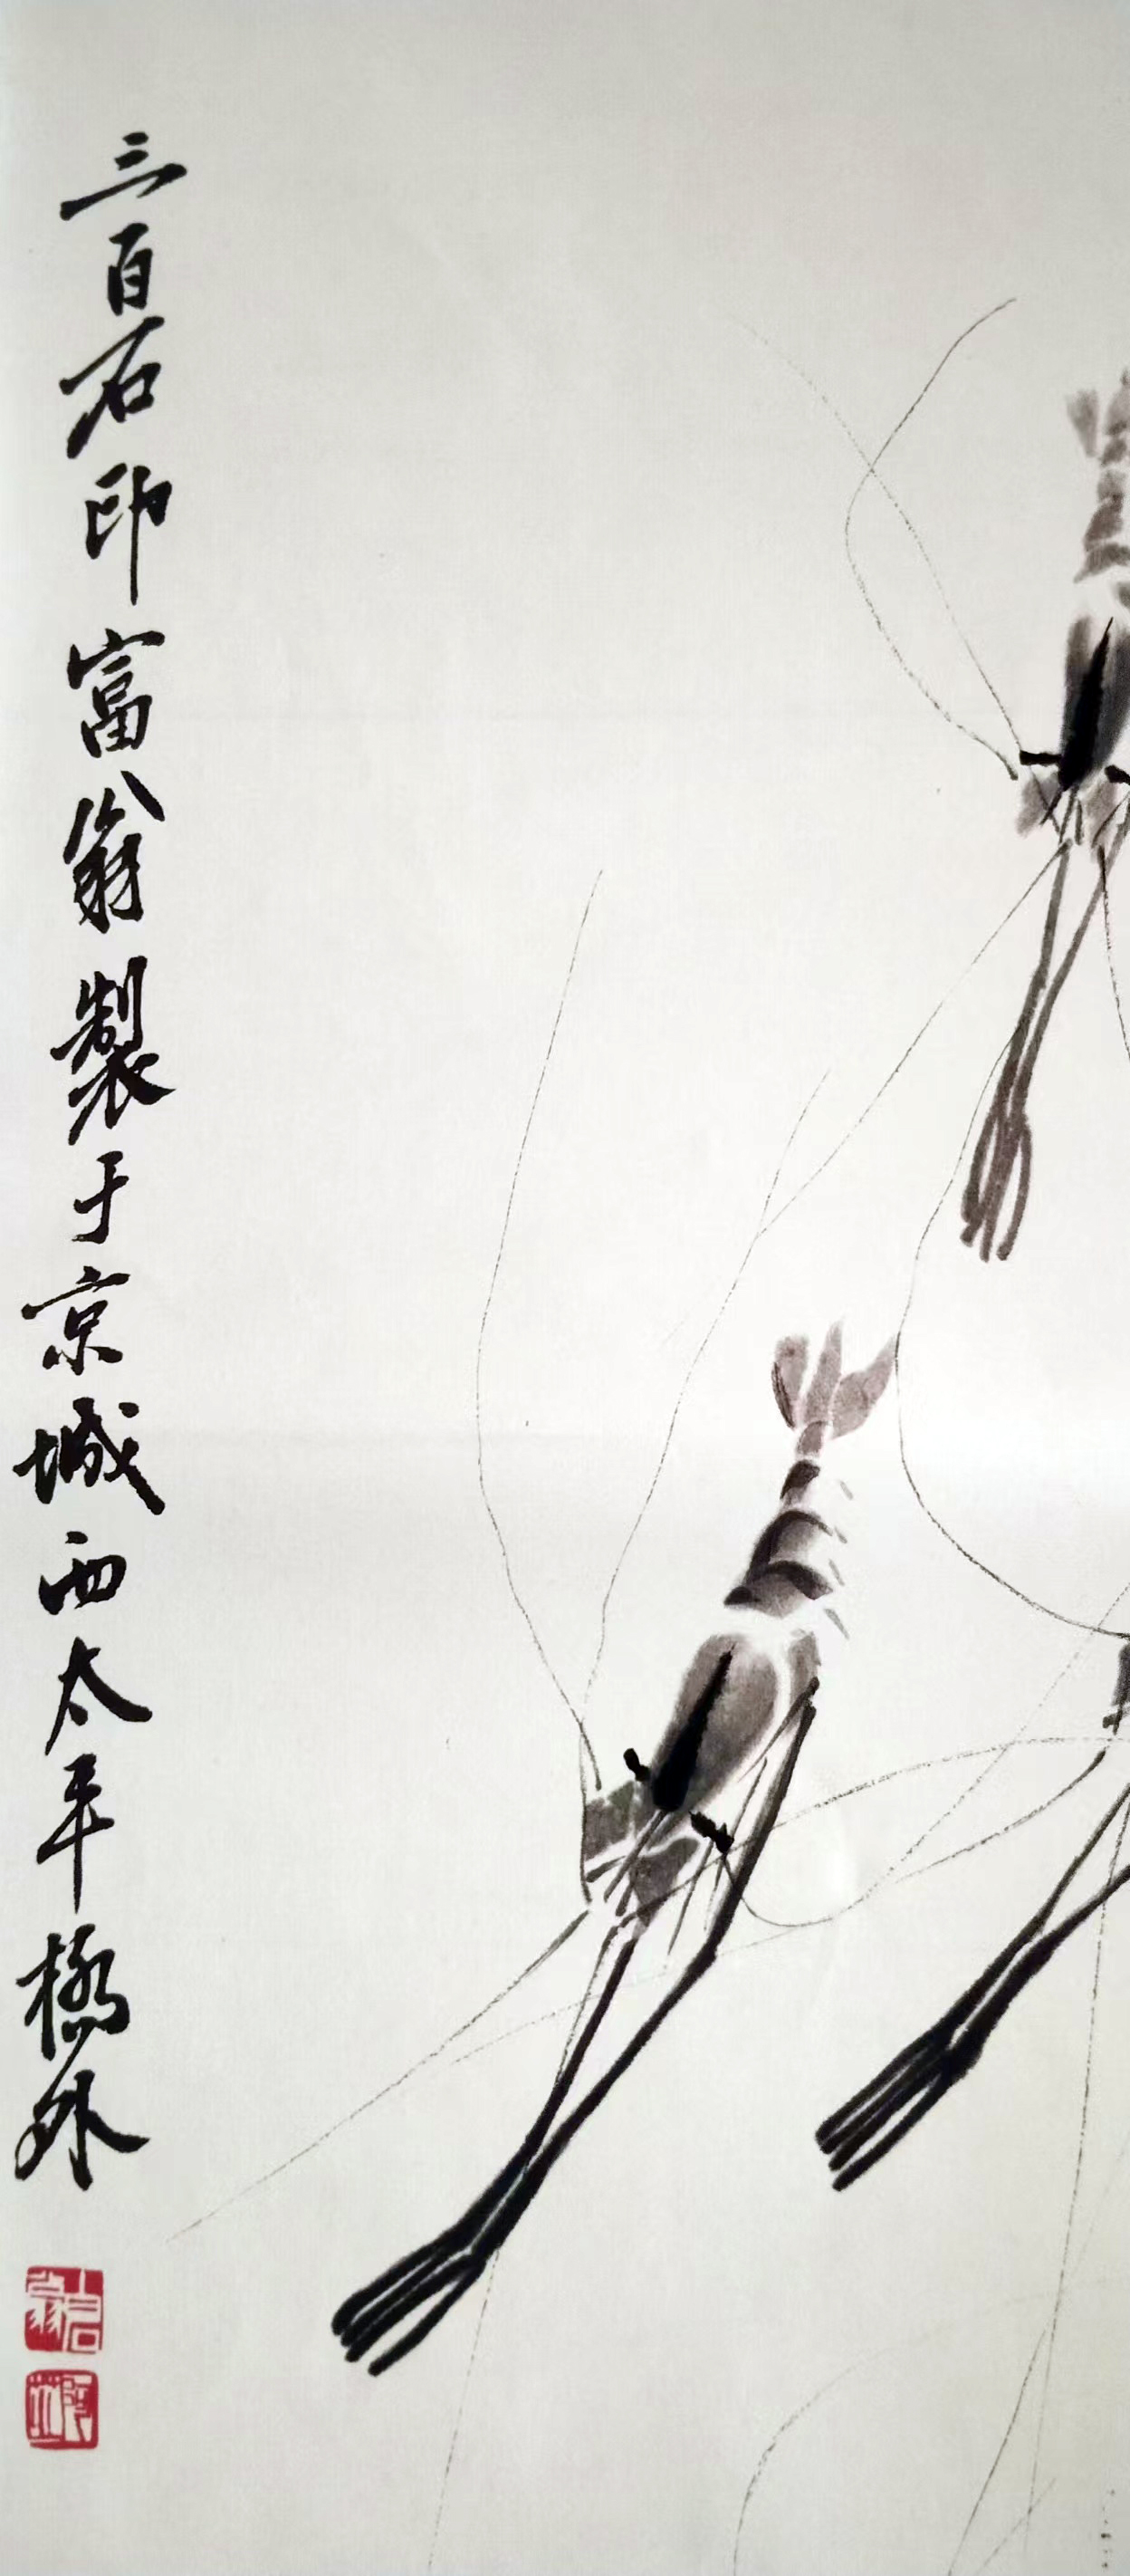 三百石印富翁製于京城西太平橋外
白石翁
阿芝